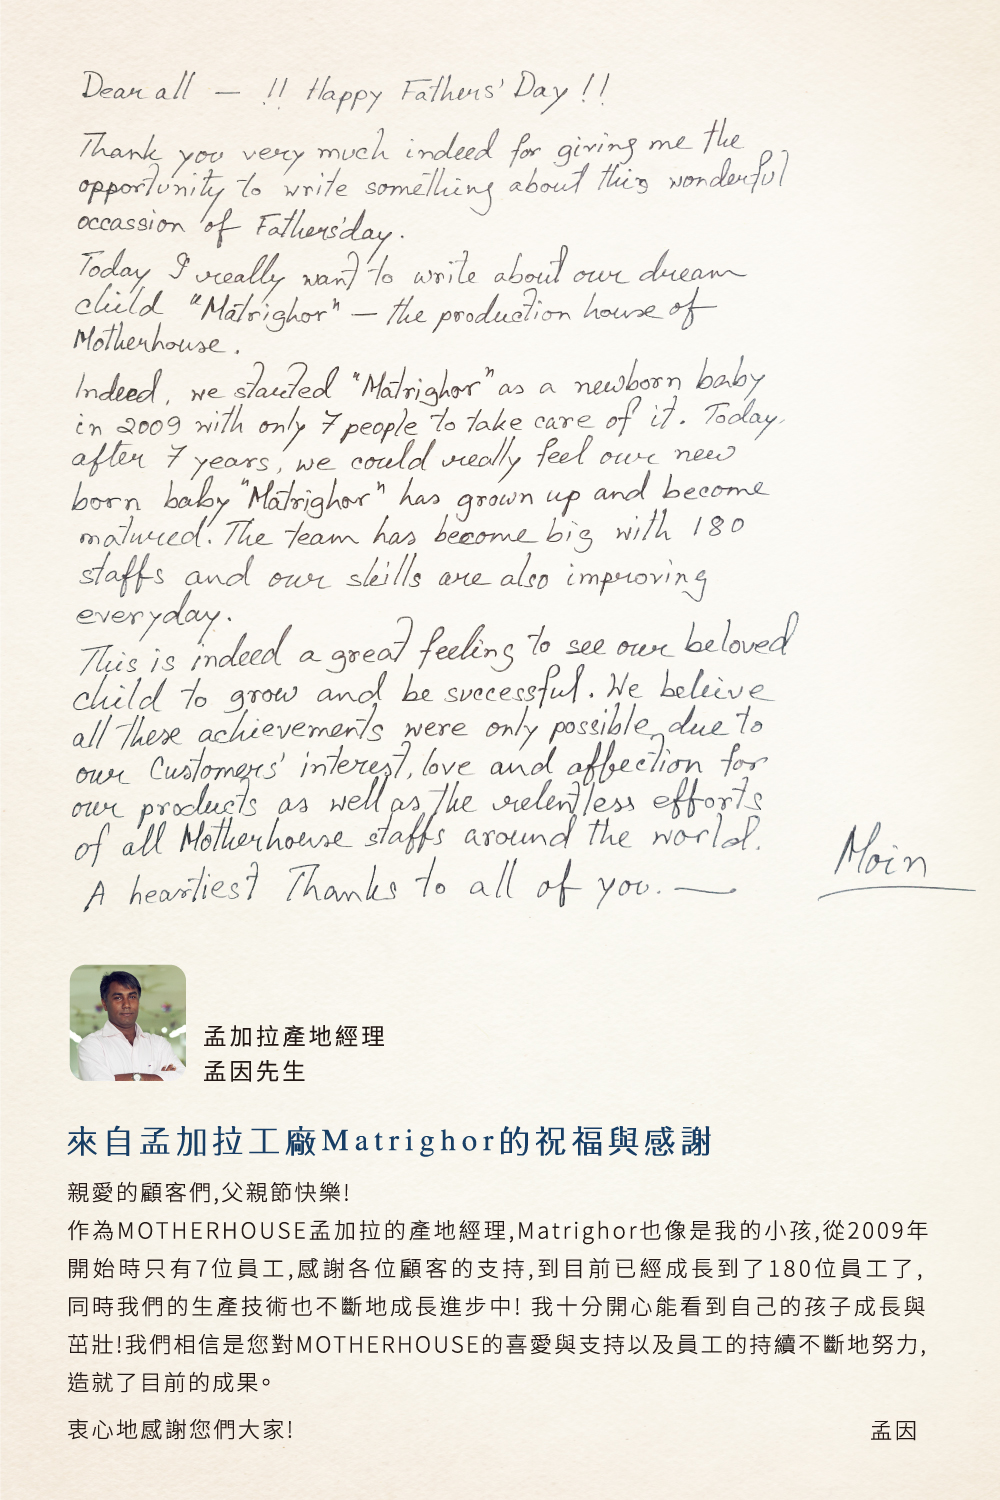 Dear all — !! Happy Fathers' Day !!
Thank you very much indeed for giving me the
opportunity to write something about this wonderful
occassion of Fathers'day.
Today I really want to write about our dream
child "Matrighor" — the production house of
Motherhouse.
Indeed, we started "Matrighor" as a newborn baby
in 2009 with only 7 people to take care of it. Today,
after 7 years, we could really feel our new
born baby "Matrighor" has grown up and become
matured. The team has become big with 180
staffs and our skills are also improving
everyday.
This is indeed a great feeling to see our beloved
child to grow and be successful. We beleive
all these achievements were only possible due to
our Customers' interest, love and affection for
our products as well as the relentless efforts
of all Motherhouse staffs around the world.
A heartiest Thanks to all of you. —
Moin
孟加拉產地經理
孟因先生
來自孟加拉工廠Matrighor的祝福與感謝
親愛的顧客們,父親節快樂!
作為MOTHERHOUSE孟加拉的產地經理,Matrighor也像是我的小孩,從2009年
開始時只有7位員工,感謝各位顧客的支持,到目前已經成長到了180位員工了,
同時我們的生產技術也不斷地成長進步中! 我十分開心能看到自己的孩子成長與
茁壯!我們相信是您對MOTHERHOUSE的喜愛與支持以及員工的持續不斷地努力,
造就了目前的成果。
衷心地感謝您們大家!
孟因